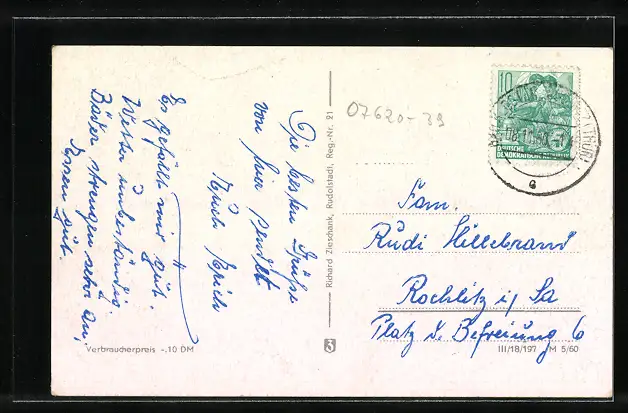 Die besten Grüße
von hier sendet
Euch Erich
Es gefällt mir gut.
Wetter unbeständig.
Bäder strengen sehr an,
Essen gut.
Verbraucherpreis -.10 DM
Richard Zieschank, Rudolstadt, Reg.-Nr. 21
3
07620-39
10
DEUTSCHE
DEMOKRATISCHE REPUBLIK
e
Fam.
Rudi Hillebrand
Rochlitz i/Sa
Platz d. Befreiung 6
III/18/197 M 5/60